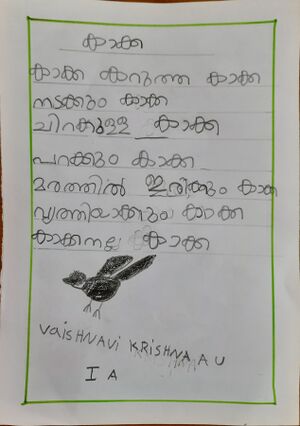 കാക്ക
കാക്ക കറുത്ത കാക്ക
നടക്കും കാക്ക
ചിറകുള്ള കാക്ക
പറക്കും കാക്ക
മരത്തിൽ ഇരിക്കും കാക്ക
വൃത്തിയാക്കും കാക്ക
കാക്ക നല്ല കാക്ക
VaiSHNAVi KRISHNA A U
I A